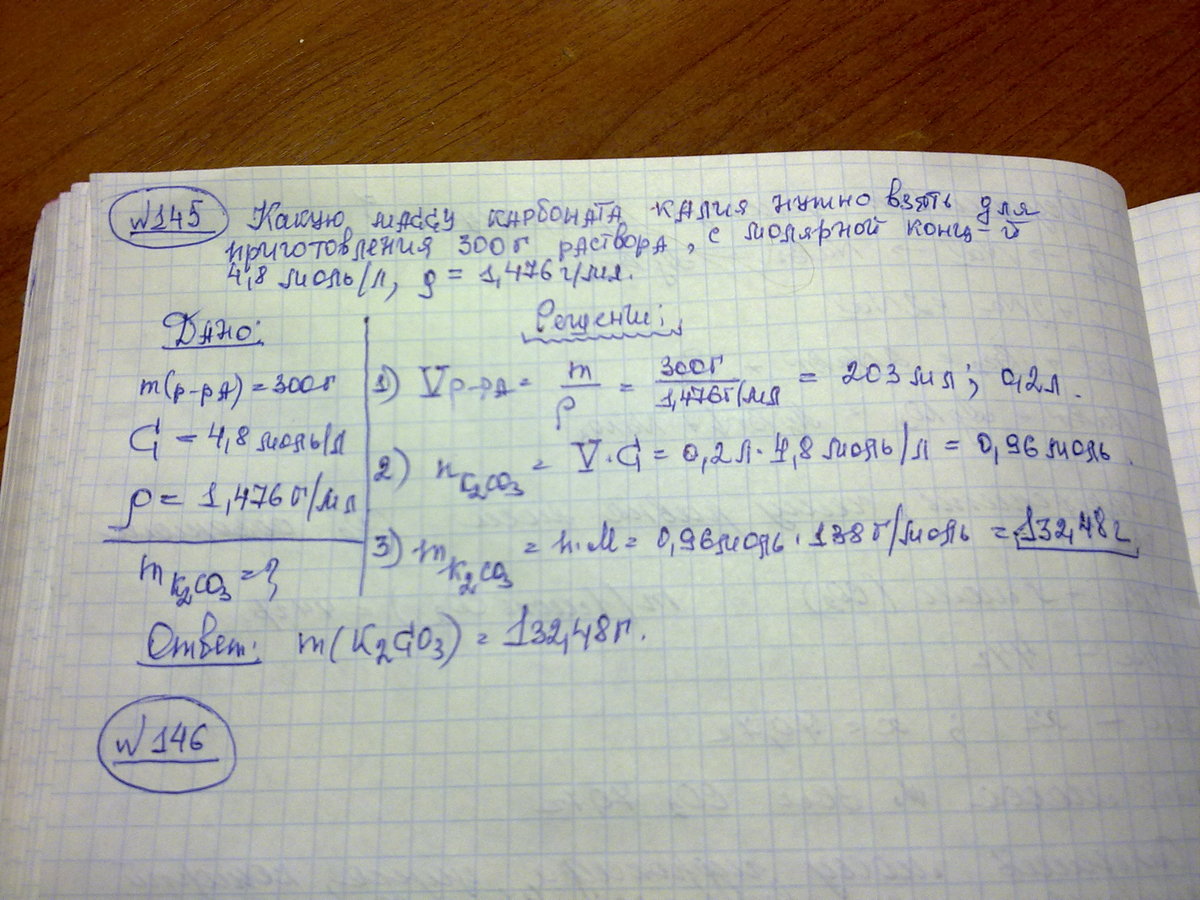 N145 Какую массу карбоната калия нужно взять для
приготовления 300г раствора, с молярной конц-й
4,8 моль/л, ρ = 1,476 г/мл.
Дано:
m(р-ра) = 300г
C = 4,8 моль/л
ρ = 1,476 г/мл
m K2CO3 = ?
Решение:
1) Vр-ра = m/ρ = 300г/1,476г/мл = 203 мл; 0,2л.
2) n K2CO3 = V·C = 0,2л·4,8 моль/л = 0,96 моль.
3) m K2CO3 = n·M = 0,96моль·138г/моль = 132,48г
Ответ: m(K2CO3) = 132,48г.
N146